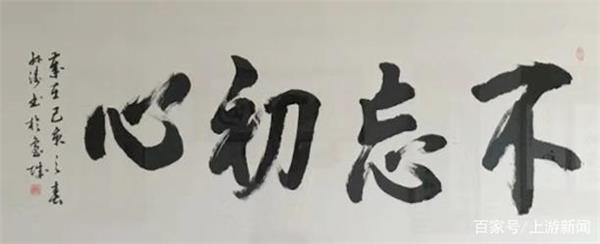 不忘初心
歲在己亥之春
书於城
百家号/上游新闻